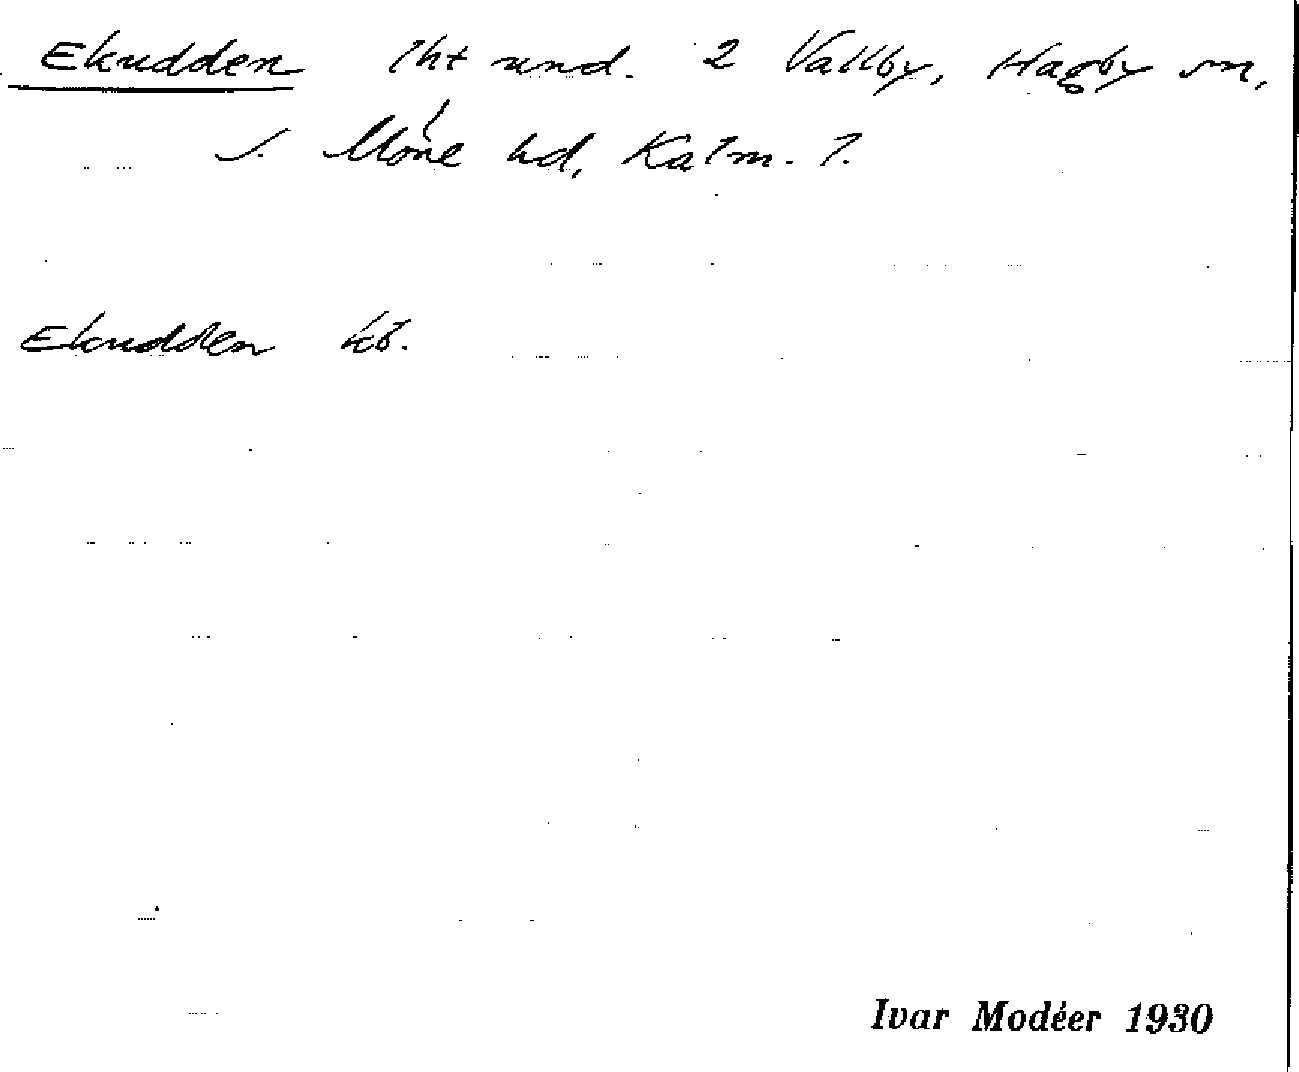 Ekudden lht und. 2 Vallby, Hagby sn,
S. Möre hd, Kalm. l.
Ekudden kb.
Ivar Modéer 1930